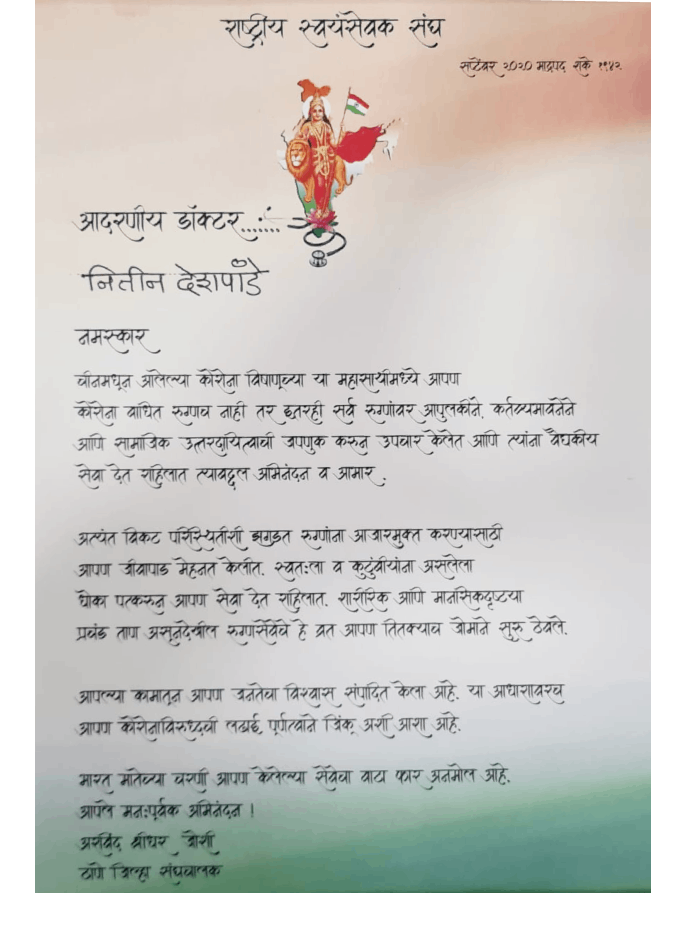 राष्ट्रीय स्वयंसेवक संघ
सप्टेंबर २०२० भाद्रपद शके १९४२
आदरणीय डॉक्टर.......
नितीन देशपांडे
नमस्कार
चीनमधून आलेल्या कोरोना विषाणूच्या या महासाथीमध्ये आपण
कोरोना बाधित रुग्णच नाही तर इतरही सर्व रुग्णांवर आपुलकीने, कर्तव्यभावनेने
आणि सामाजिक उत्तरदायित्वाची जपणुक करुन उपचार केलेत आणि त्यांना वैद्यकीय
सेवा देत राहिलात त्याबद्दल अभिनंदन व आभार.
अत्यंत बिकट परिस्थितीशी झगडत रुग्णांना आजारमुक्त करण्यासाठी
आपण जीवापाड मेहनत केलीत. स्वत:ला व कुटुंबीयांना असलेला
धोका पत्करुन आपण सेवा देत राहिलात. शारीरिक आणि मानसिकदृष्टया
प्रचंड ताण असूनदेखील रुग्णसेवेचे हे व्रत आपण तितक्याच जोमाने सुरु ठेवले.
आपल्या कामातून आपण जनतेचा विश्वास संपादित केला आहे. या आधाराावरच
आपण कोरोनाविरुध्दची लढाई, पूर्णत्वाने जिंकू अशी आशा आहे.
भारत मातेच्या चरणी आपण केलेल्या सेवेचा वाटा फार अनमोल आहे.
आपले मन:पूर्वक अभिनंदन !
अरविंद श्रीधर जोशी
ठाणे जिल्हा संघचालक